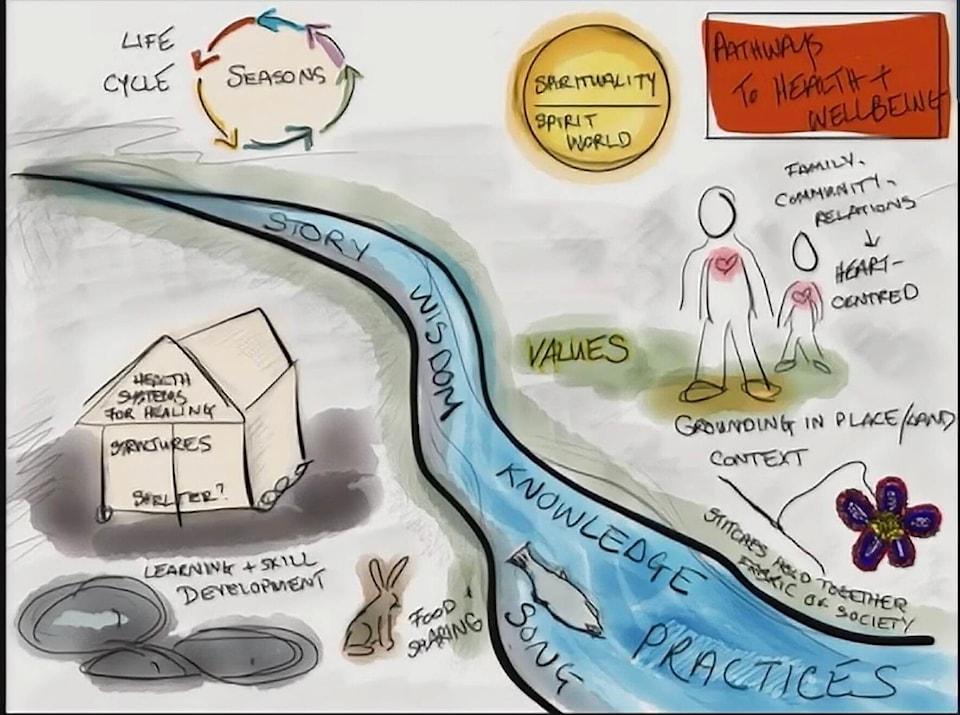 LIFE
CYCLE
SEASONS
SPIRITUALITY
SPIRIT
WORLD
PATHWAYS
TO HEALTH +
WELLBEING
FAMILY,
COMMUNITY,
RELATIONS
HEART-
CENTRED
STORY
WISDOM
KNOWLEDGE
PRACTICES
SONG
VALUES
GROUNDING IN PLACE/LAND
CONTEXT
STITCHES HOLD TOGETHER
FABRIC OF SOCIETY
HEALTH
SYSTEMS
FOR HEALING
STRUCTURES
SHELTER?
LEARNING + SKILL
DEVELOPMENT
FOOD +
SHARING